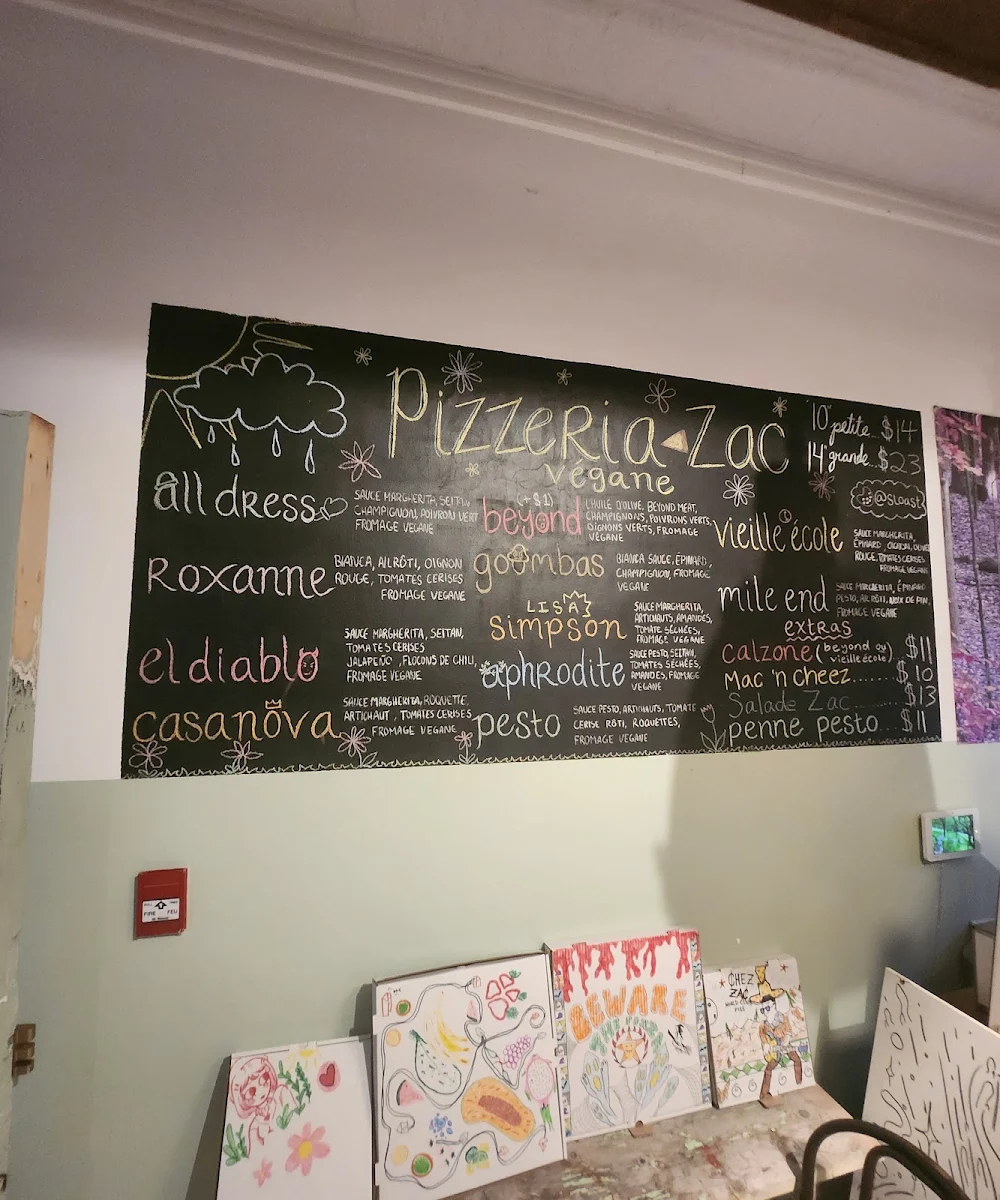 Pizzeria Zac
végane
10" petite...$14
14" grande...$23
@sloast
all dress
SAUCE MARGHERITA, SEITAN,
CHAMPIGNON, POIVRON VERT
FROMAGE VEGANE
Roxanne
BIANCA, AIL RÔTI, OIGNON
ROUGE, TOMATES CERISES
FROMAGE VEGANE
el diablo
SAUCE MARGHERITA, SEITAN,
TOMATES CERISES
JALAPEÑO, FLOCONS DE CHILI,
FROMAGE VEGANE
casanova
SAUCE MARGHERITA, ROQUETTE,
ARTICHAUT, TOMATES CERISES
FROMAGE VEGANE
(+$1)
beyond
L'HUILE D'OLIVE, BEYOND MEAT,
CHAMPIGNONS, POIVRONS VERTS,
OIGNONS VERTS, FROMAGE
VÉGANE
goombas
BIANCA SAUCE, ÉPINARD,
CHAMPIGNON, FROMAGE
VEGANE
LISA
simpson
SAUCE MARGHERITA,
ARTICHAUTS, AMANDES,
TOMATE SÉCHÉES,
FROMAGE VEGANE
aphrodite
SAUCE PESTO, SEITAN,
TOMATES SÉCHÉES,
AMANDES, FROMAGE
VEGANE
pesto
SAUCE PESTO, ARTICHUTS, TOMATE
CERISE RÔTI, ROQUETTES,
FROMAGE VEGANE
vieille école
SAUCE MARGHERITA,
ÉPINARD, OIGNON, OLIVE
ROUGE, TOMATES CERISES
FROMAGE VEGANE
mile end
SAUCE MARGHERITA, ÉPINARD
PESTO, AIL RÔTI, NOIX DE PIN,
FROMAGE VEGANE
extras
calzone (beyond ou vieille école) $11
Mac 'n cheez.......$10
Salade Zac....$13
penne pesto...$11
FIRE FEU
BEWARE
CHEZ
ZAC